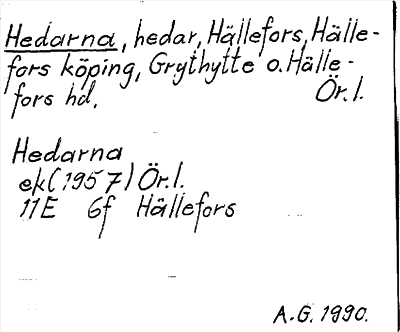 Hedarna, hedar, Hällefors, Hälle-
fors köping, Grythytte o. Hälle-
fors hd. Ör. l.
Hedarna
ek (1957) Ör. l.
11E 6f Hällefors
A.G. 1990.